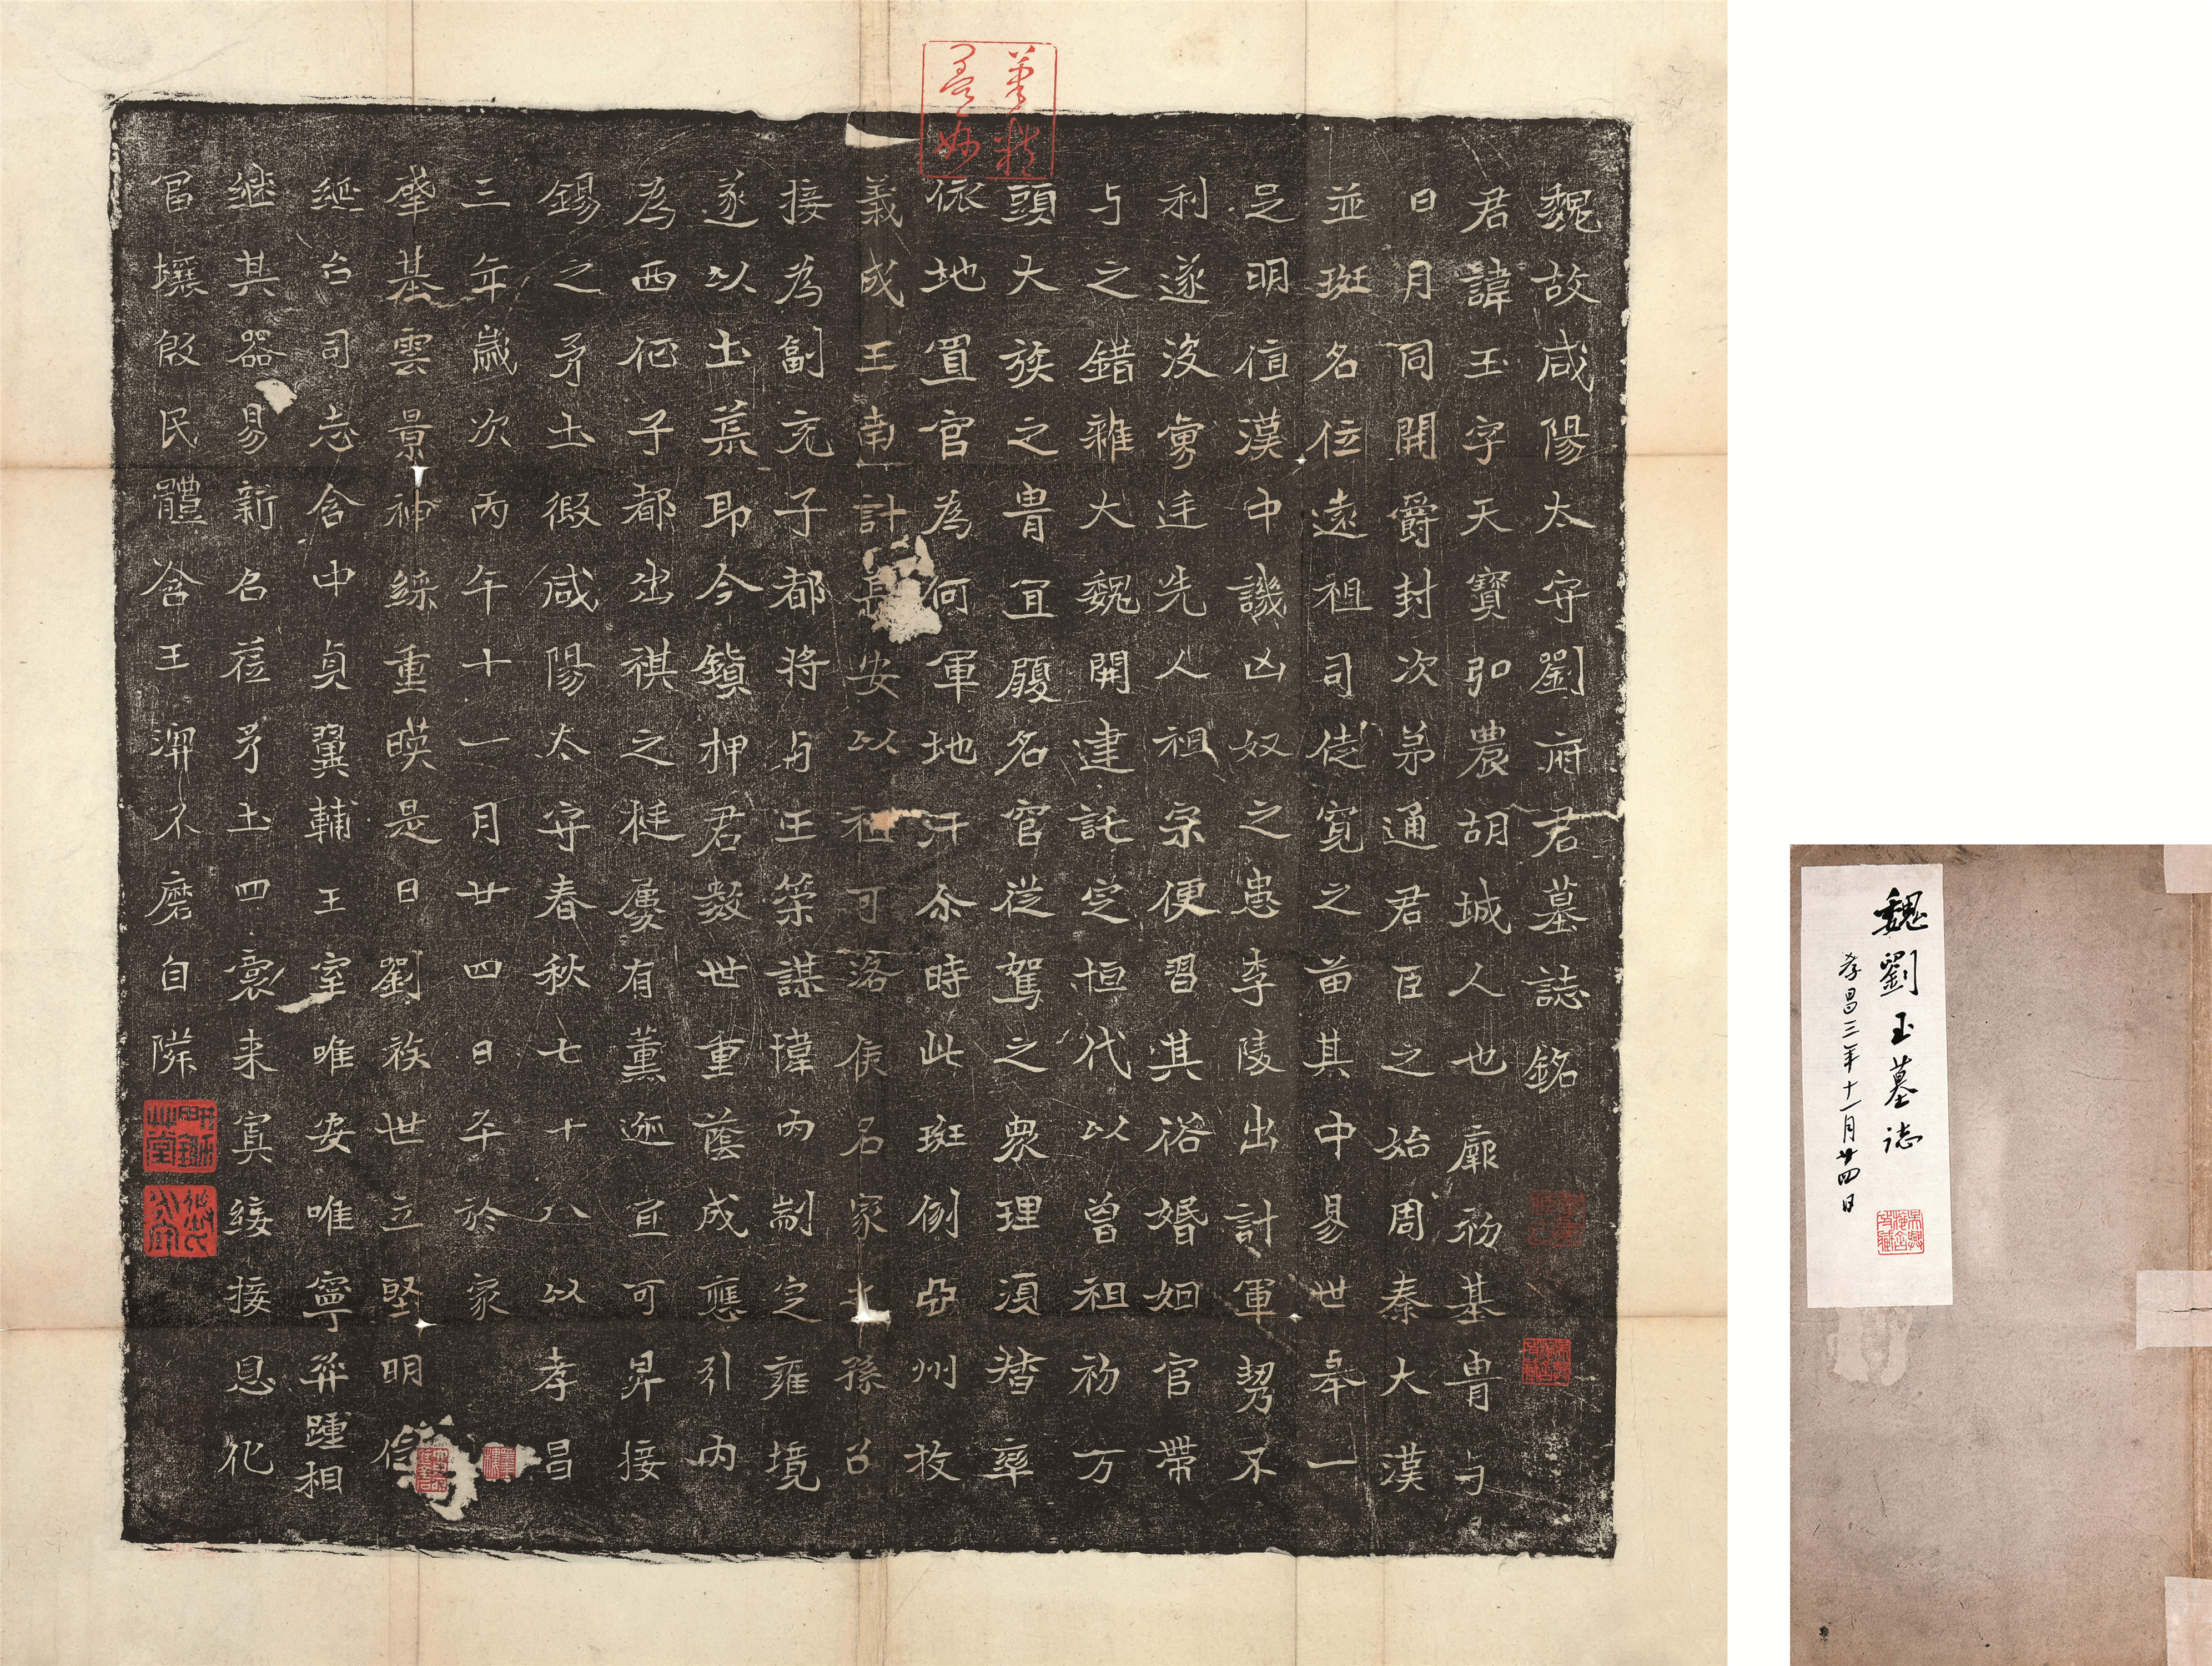 魏故咸陽太守劉府君墓誌銘
君諱玉字天寶弘農胡城人也廓初基胄与
日月同開爵封次弟通君臣之始周秦大漢
並班名位遠祖司徒寬之苗其中易世舉一
足明值漢中譏凶奴之患李陵出討軍勢不
利遂沒虜廷先人祖宗便習其俗婚姻官帶
与之錯雜大魏開建託定恒代以曾祖初万
頭大族之胄宜履名官從駕之衆理須督率
依地置官為何軍地汗尒時此班例亞州牧
義成王南討長安以祖可洛侯名家之孫召
接為副充子都將与王策謀瑋內制定雍境
遂以土業耶今鎮押君数世重蔭成應引內
為西征子都出祺之桯屢有薰迹宜可昇接
錫之矛土假咸陽太守春秋七十八以孝昌
三年歲次丙午十一月廿四日卒於家
肇基雲景神緜重暎是日劉族世立堅明信
綖台司志含中貞翼輔王室唯安唯寧弈踵相
継其器易新名蒞矛土四裏来賓綏接恩化
冨壤殷民體含王湃不磨自隣
魏劉玉墓誌
孝昌三年十一月廿四日